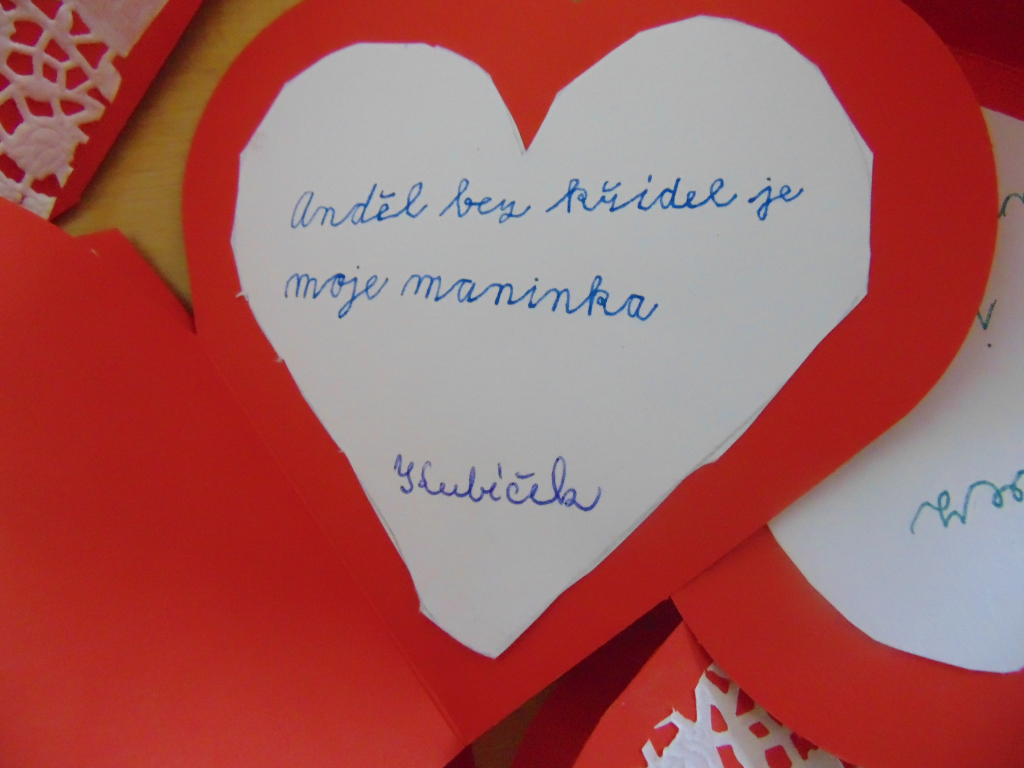 Anděl bez křidel je
moje maninka
Kubíček